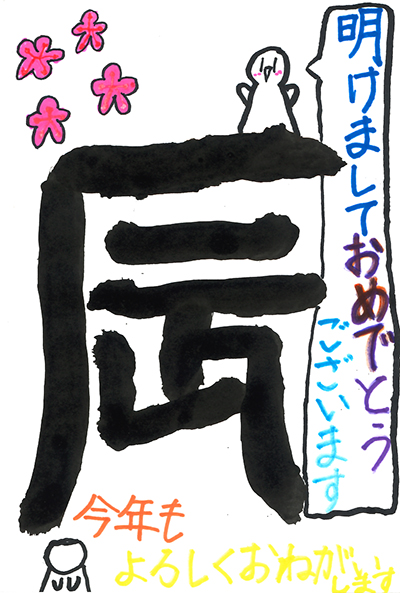 明けましておめでとう
ございます
辰
今年も
よろしくおねがいします